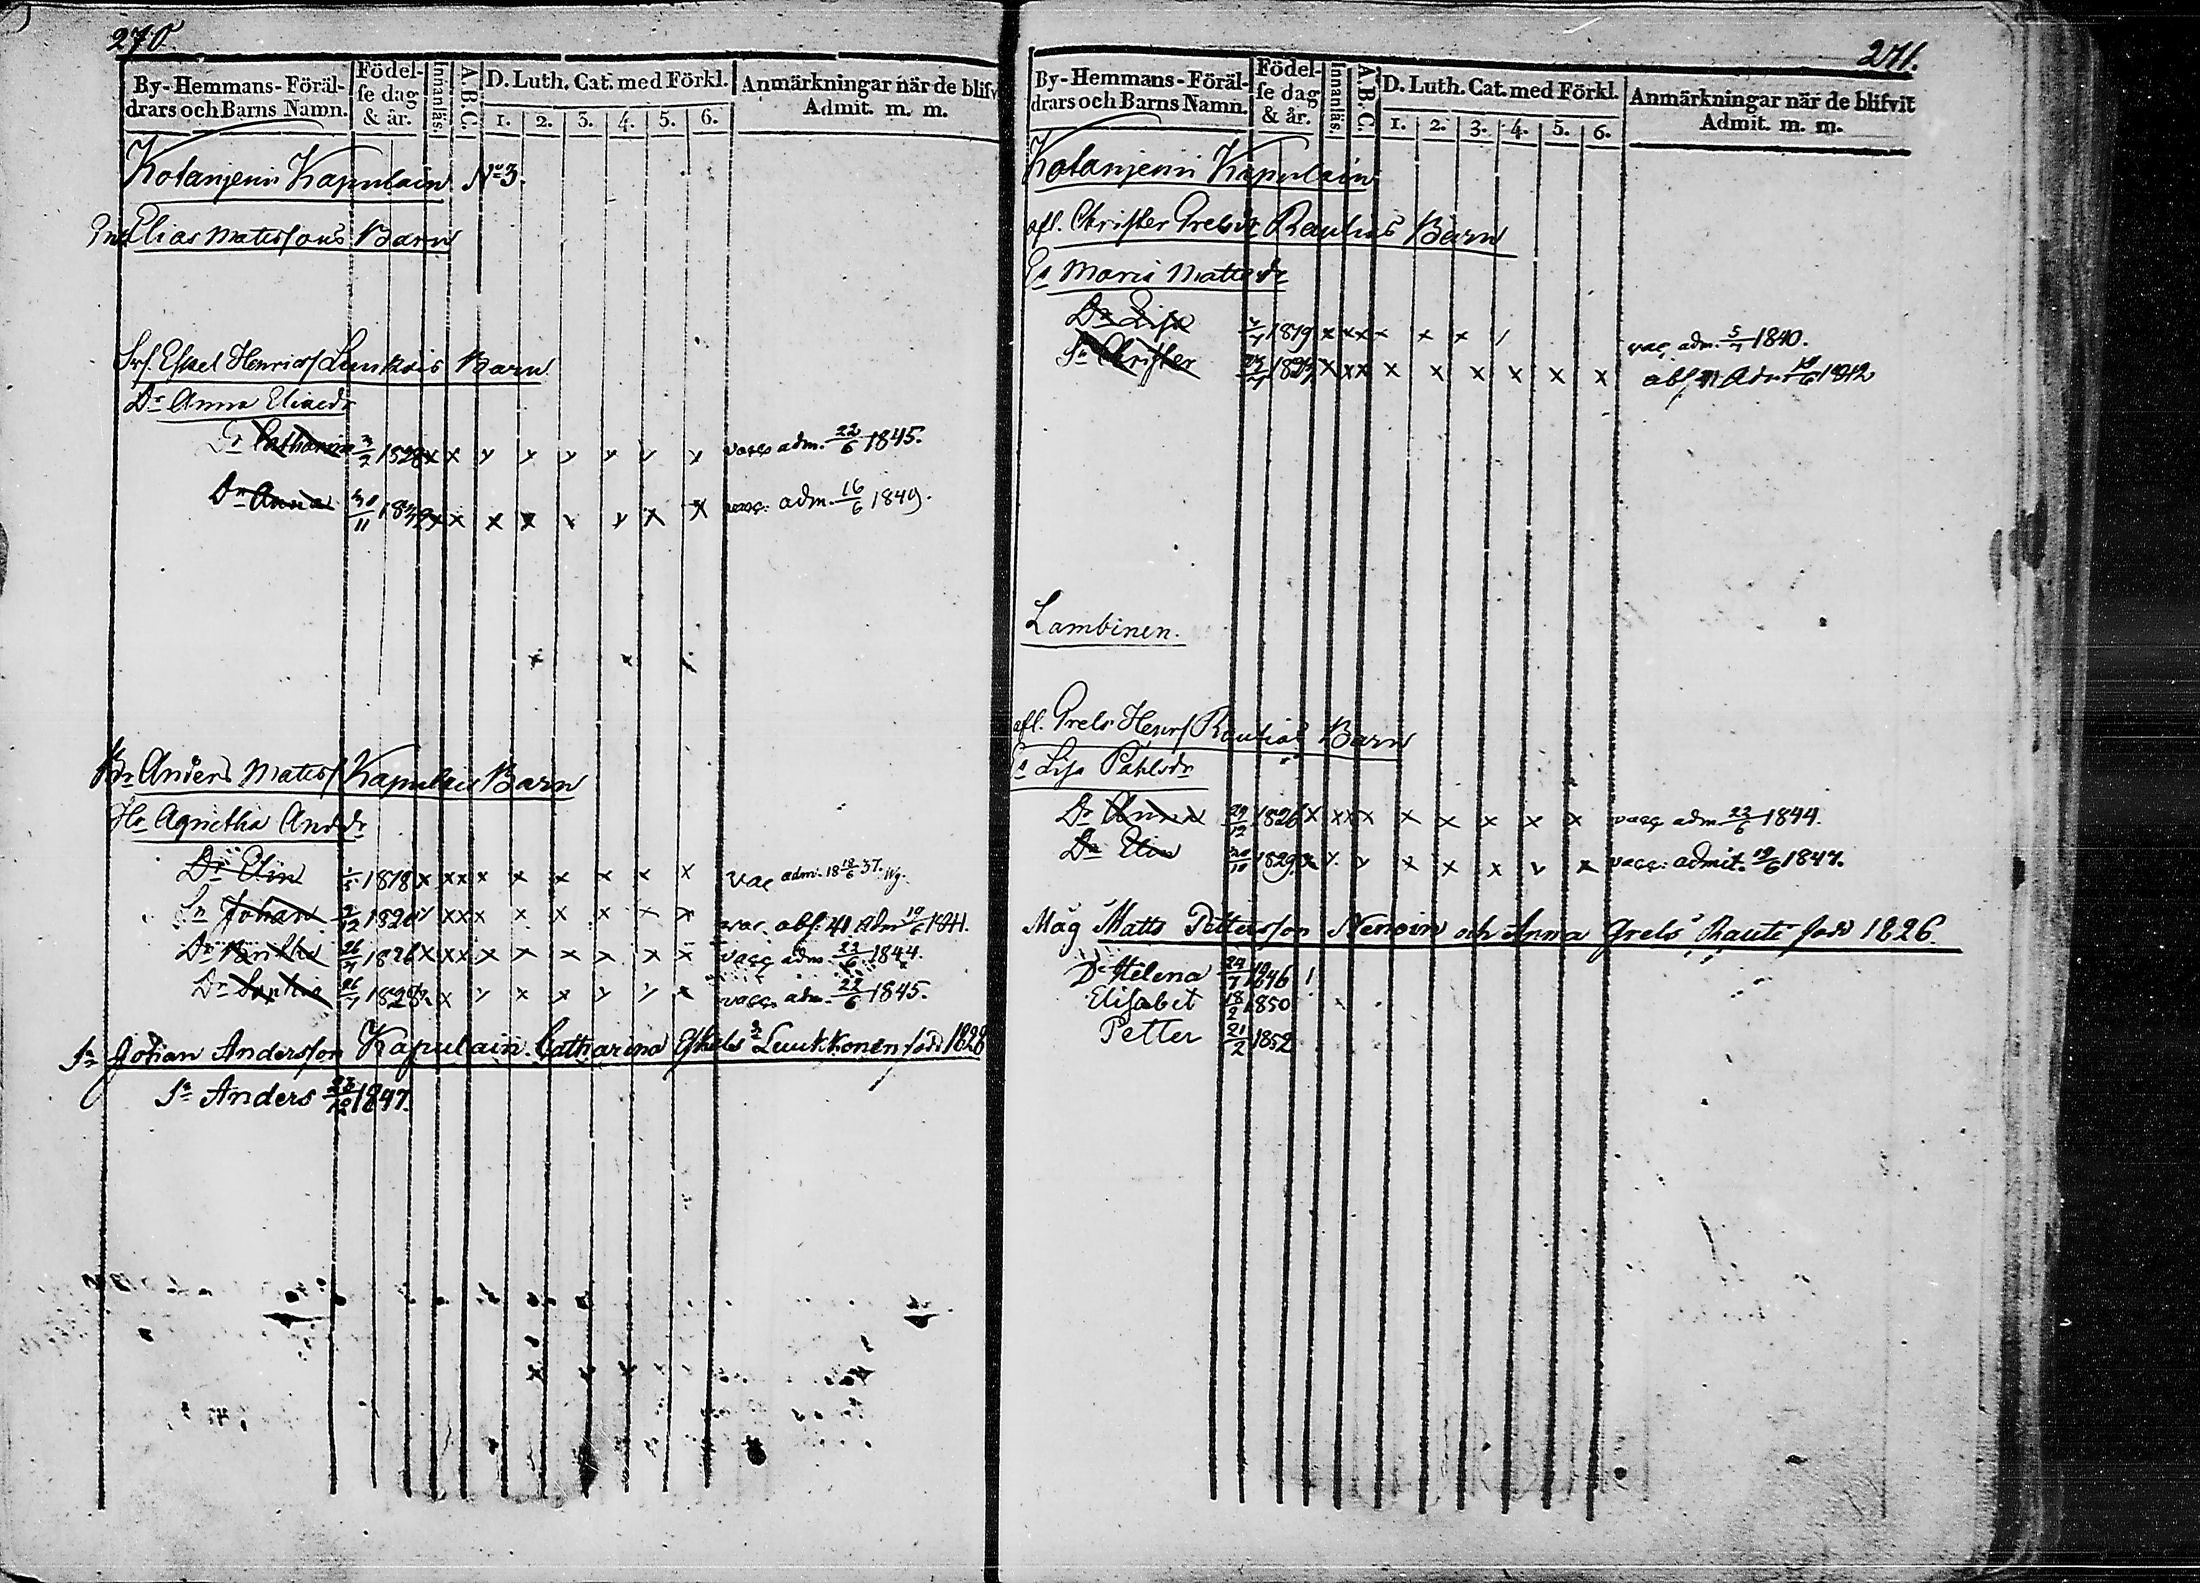 270.
By-Hemmans-Föräl-
drars och Barns Namn.
Födel-
se dag
& år.
Innanläs.
A.B.C.
D. Luth. Cat. med Förkl.
1. 2. 3. 4. 5. 6.
Anmärkningar när de blifv
Admit. m. m.
Kotanjemi Kapulain No 3.
Elias Matssons Barn
Eskel Henrics Luukois Barn
Dr Anna Eliaedr
Dr Catharina 3/2 1828 x x y y y y y y vacc adm. 22/6 1845.
Dr Anna 30/11 1832 x x x x x y x x vacc. adm. 16/6 1849.
x x
Br Anders Matss Kapulais Barn
Hu Agnetha Andsdr
Dr Elin 1/5 1818 x xx x x x x x x vac adm. 18 18/6 37.
Sn Johan 2/12 1820 y xxx x x x x x vac. abs. 41 Adm 19/6 1841.
Dr 26/4 1826 x xxx x x x x x vacc adm. 23/6 1844.
Dr Sophia 26/4 1828 x x y x x y y x vacc. adm. 22/6 1845.
Sn Johan Andersson Kapulain. Catharina Eskels Dr Luukkonen född 1828
Sn Anders 23/12 1847.
271.
By-Hemmans-Föräl-
drars och Barns Namn.
Födel-
se dag
& år.
Innanläs.
A.B.C.
D. Luth. Cat. med Förkl.
1. 2. 3. 4. 5. 6.
Anmärkningar när de blifvit
Admit. m. m.
Kotanjemi Kapulain
afl. Christer Grelss Rautias Barn
Ea Maria Mattsdr
Dr Lisa 1819 x xx x x x / vac. adm. 5/7 1840.
Sn Christer 1823 x xx x x x x x x abs 41 Adm 19/6 1842
Lambinen.
afl. Grels Henrs Rautias Barn
Ea Lisa Påhlsdr
Dr Anna 29/12 1826 x xxx x x x x x vacc adm 23/6 1844.
Dr Elin 30/10 1829 x y y x x x v x vacc. admit. 19/6 1847.
Måg Matts Pettersson Nenoin och Anna Grels Dr Rauti född 1826.
Dr Helena 24/7 1846 /
Elisabet 18/2 1850
Petter 21/2 1852